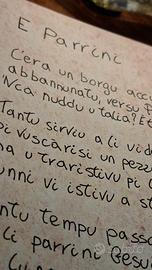 E Parrini
C'era un borgu acci
abbannunatu, versu p
'Nca nuddu u talia? E
Tantu sirviu a li vid
pi vuscarisi un pezz
na u traristivu pi
unni vi istivu a s
ntu tempu pass
li parrini Gesu